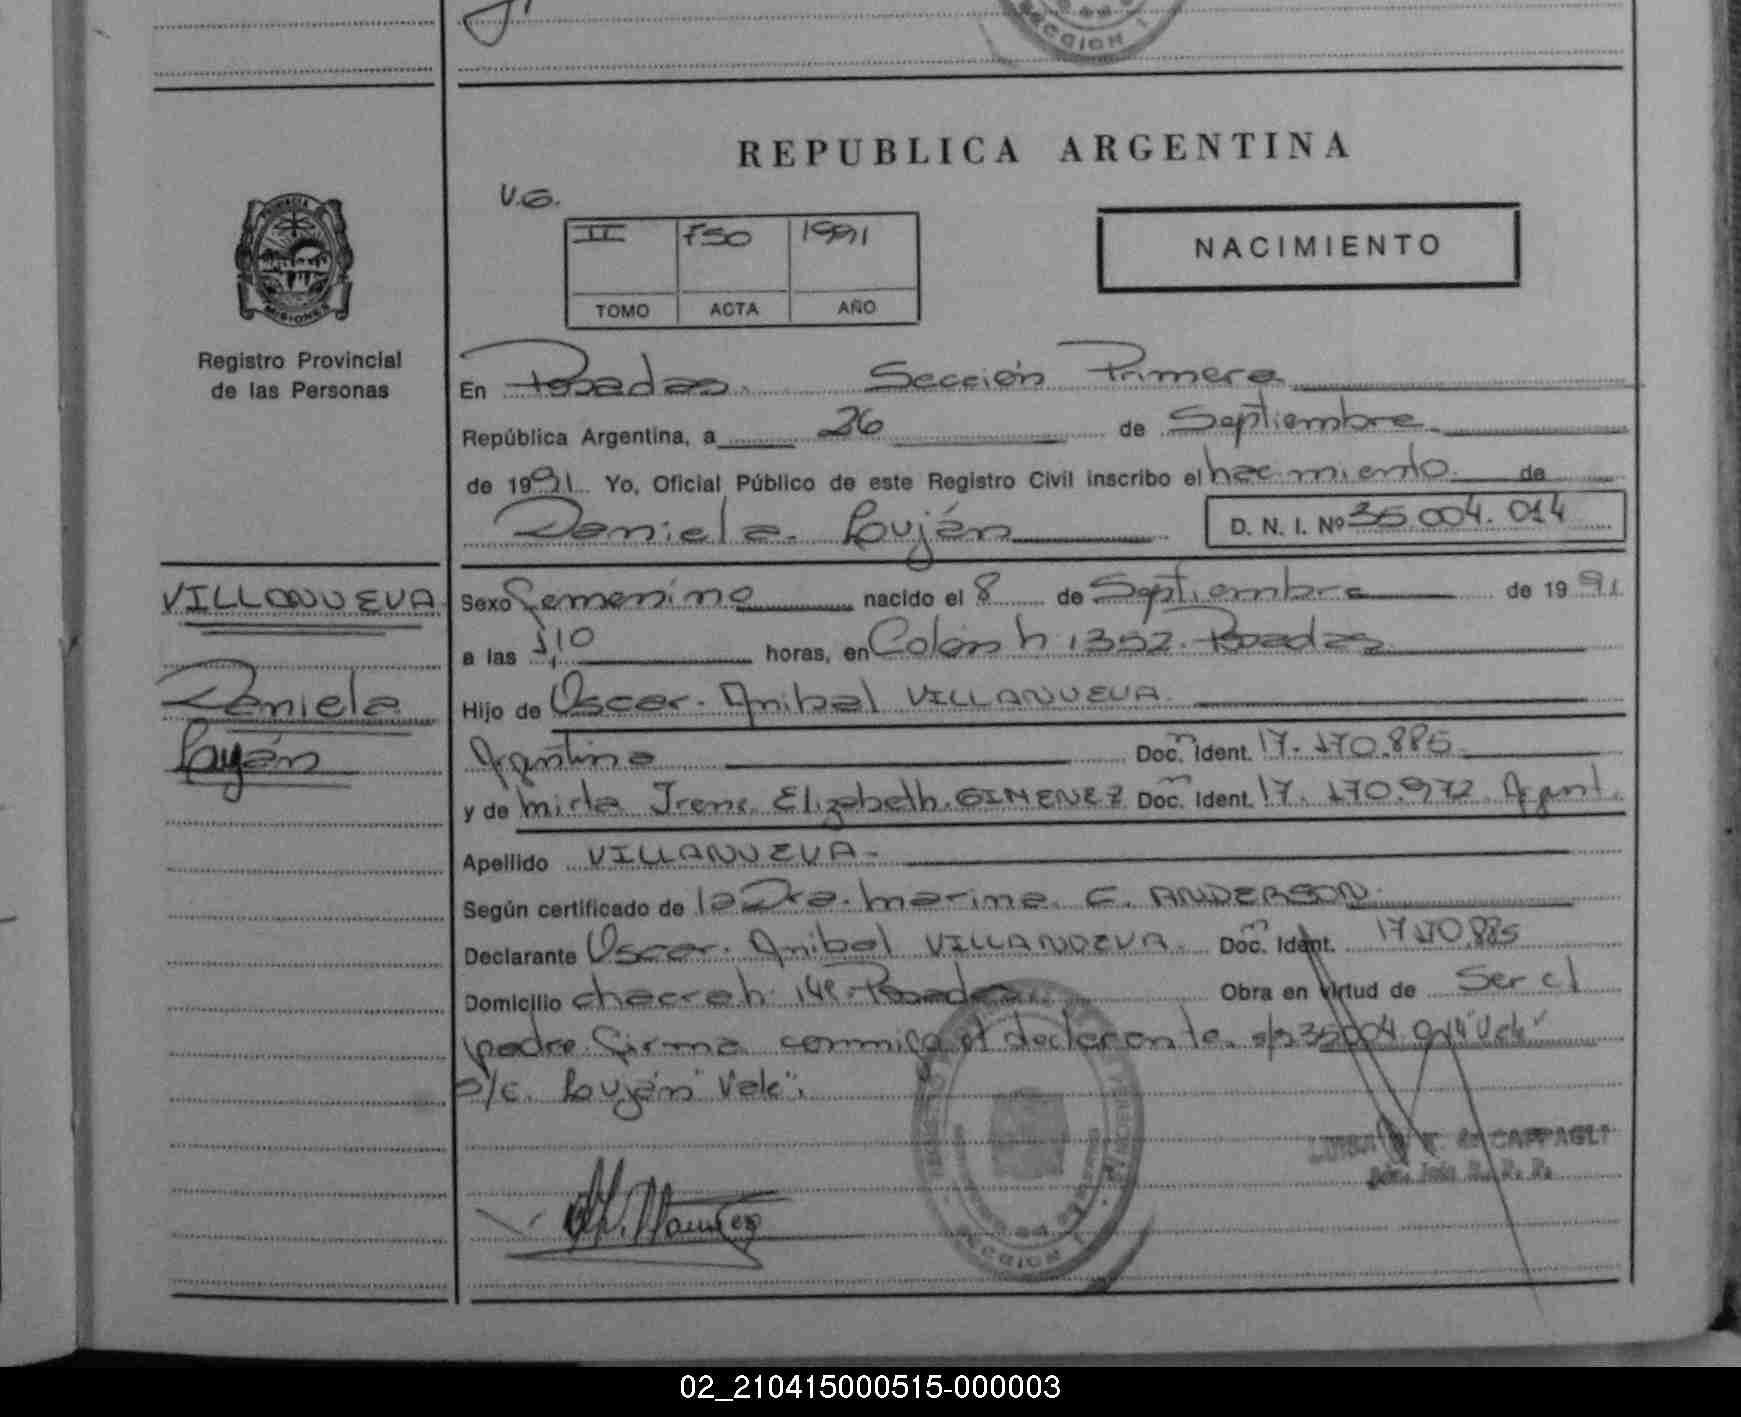 SECCION 1
REPUBLICA ARGENTINA
V.G.
NACIMIENTO
II 750 1991
TOMO ACTA AÑO
PROVINCIA
MISIONES
Registro Provincial
de las Personas
En Posadas. Sección Primera
República Argentina, a 26 de Septiembre
de 1991 Yo, Oficial Público de este Registro Civil inscribo el nacimiento de
Daniela Luján D. N. I. Nº 36.004.014
VILLANUEVA
Daniela
Luján
Sexo femenino nacido el 8 de Septiembre de 1991
a las 1,10 horas, en Colón n 1352. Posadas
Hijo de Oscar Anibal VILLANUEVA
Argentino Doc. Ident. 17.170.885
y de Mirta Irene Elizabeth GIMENEZ Doc. Ident. 17.170.972 Argent.
Apellido VILLANUEVA-
Según certificado de la Dra. Marina C. ANDERSON
Declarante Oscar Anibal VILLANUEVA Doc. Ident. 17.170.885
Domicilio chacra n 148-Posadas Obra en virtud de Ser el
padre firma conmigo el declarante. 004.014 "Vale"
s/c. Luján "Vale".
SECCION 1
02_210415000515-000003